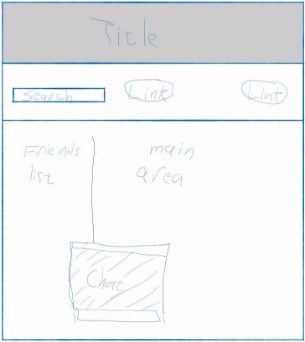 Title
Search
Link
Link
Friends
list
main
area
Chat